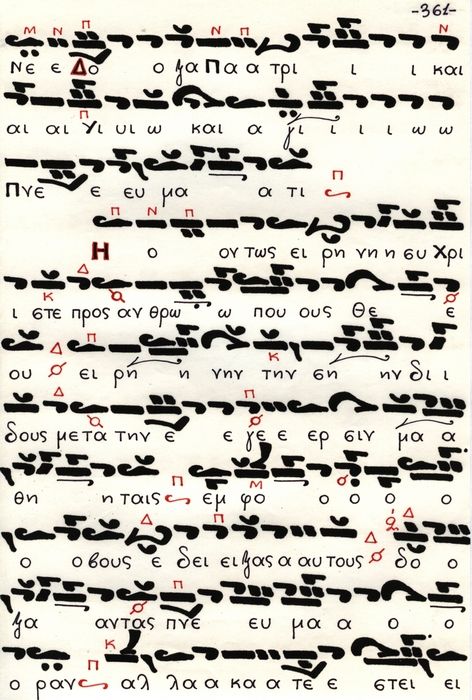 -361-
νε ε Δο ο ξα Πα α τρι ι ι και
αι αι Υι υι ω και α γι ι ι ι ω ω
Πνε ε ευ μα α τι
Η ο ον τως ει ρη νη η συ Χρι
ι στε προς αν θρω ω που ους Θε ε
ου ει ρη η νην την ση ην δι ι
δους με τα την ε ε γε ε ερ σιν μα α
θη η ταις εμ φο ο ο ο ο
ο ο βους ε δει ει ξας α αυ τους δο ο
ξα αν τας πνε ευ μα α ο ο
ο ραν αλ λα α κα α τε ε στει ει